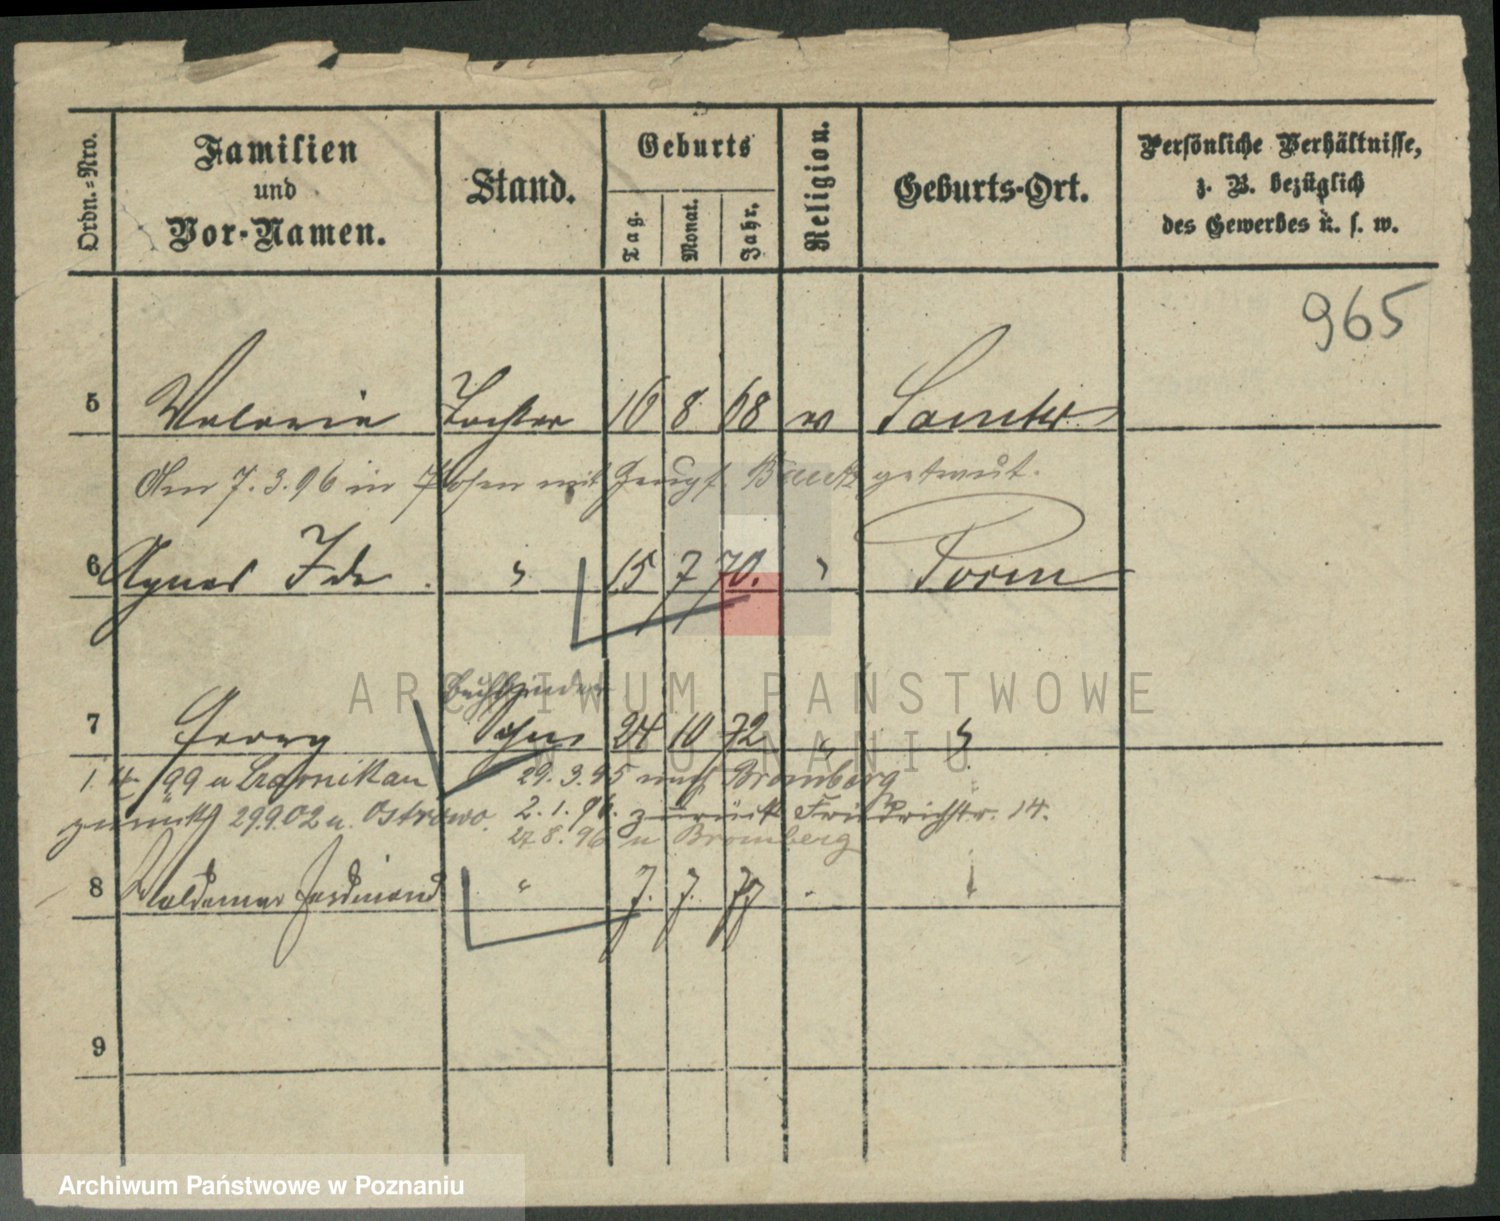 Ordn.=Nro.
Familien
und
Vor-Namen.
Stand.
Geburts
Tag.
Monat.
Jahr.
Religion.
Geburts-Ort.
Persönliche Verhältnisse,
z. B. bezüglich
des Gewerbes u. s. w.
965
5 Valerie Tochter 16 8 68 Samter
Den 7. 3. 96 in Posen mit getraut.
6 Agnes Ida " 15 7 70. " Posen
Buchbinder
7 Georg Sohn 24 10 72 " "
99 n Czarnikau 29. 3. 95 nach Bromberg
zurück 29.9.02 n. Ostrowo. 2. 1. 96. zurück Friedrichstr. 14.
27 8. 96 n Bromberg
8 Waldemar Ferdinand " 7. 7. 77 " "
9
ARCHIWUM PAŃSTWOWE
W POZNANIU
Archiwum Państwowe w Poznaniu